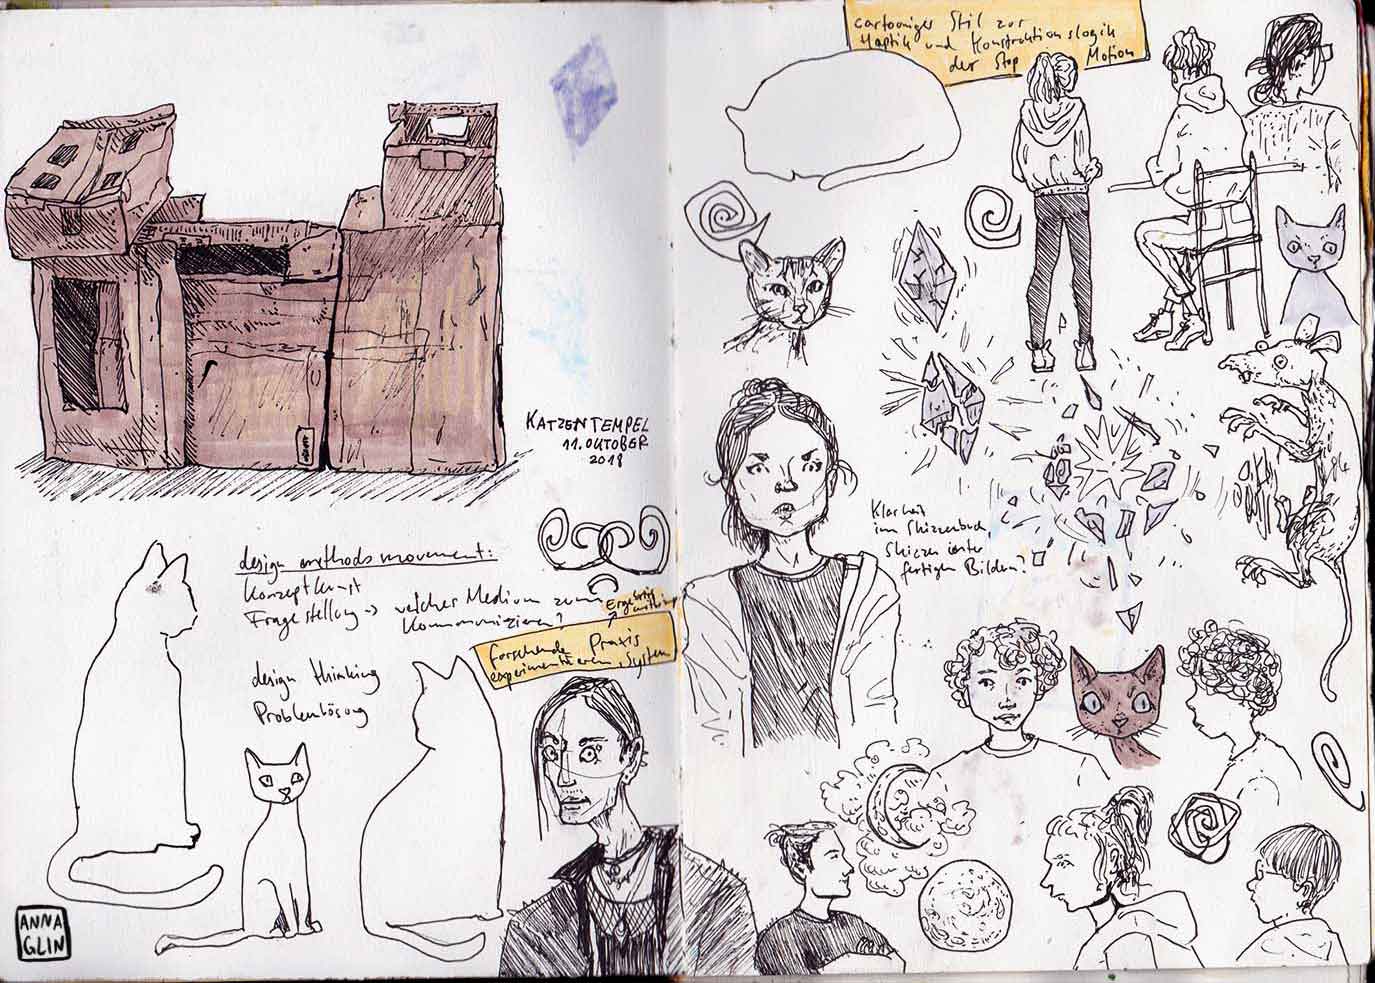 KATZENTEMPEL
11. OKTOBER
2018
design methods movement:
Konzeptkunst
Fragestellung → welches Medium zum
Kommunizieren?
design thinking
Problemlösung
Ergebnis
Forschende Praxis
experimentieren, System
ANNA
GLIN
cartooniger Stil zur
Haptik und Konstruktionslogik
der Stop Motion
Klarheit
im Skizzenbuch
Skizzen
fertigen Bildern?